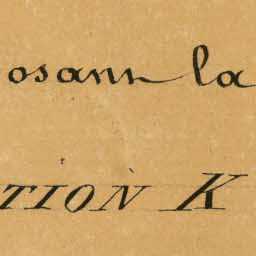 osann la
TION K